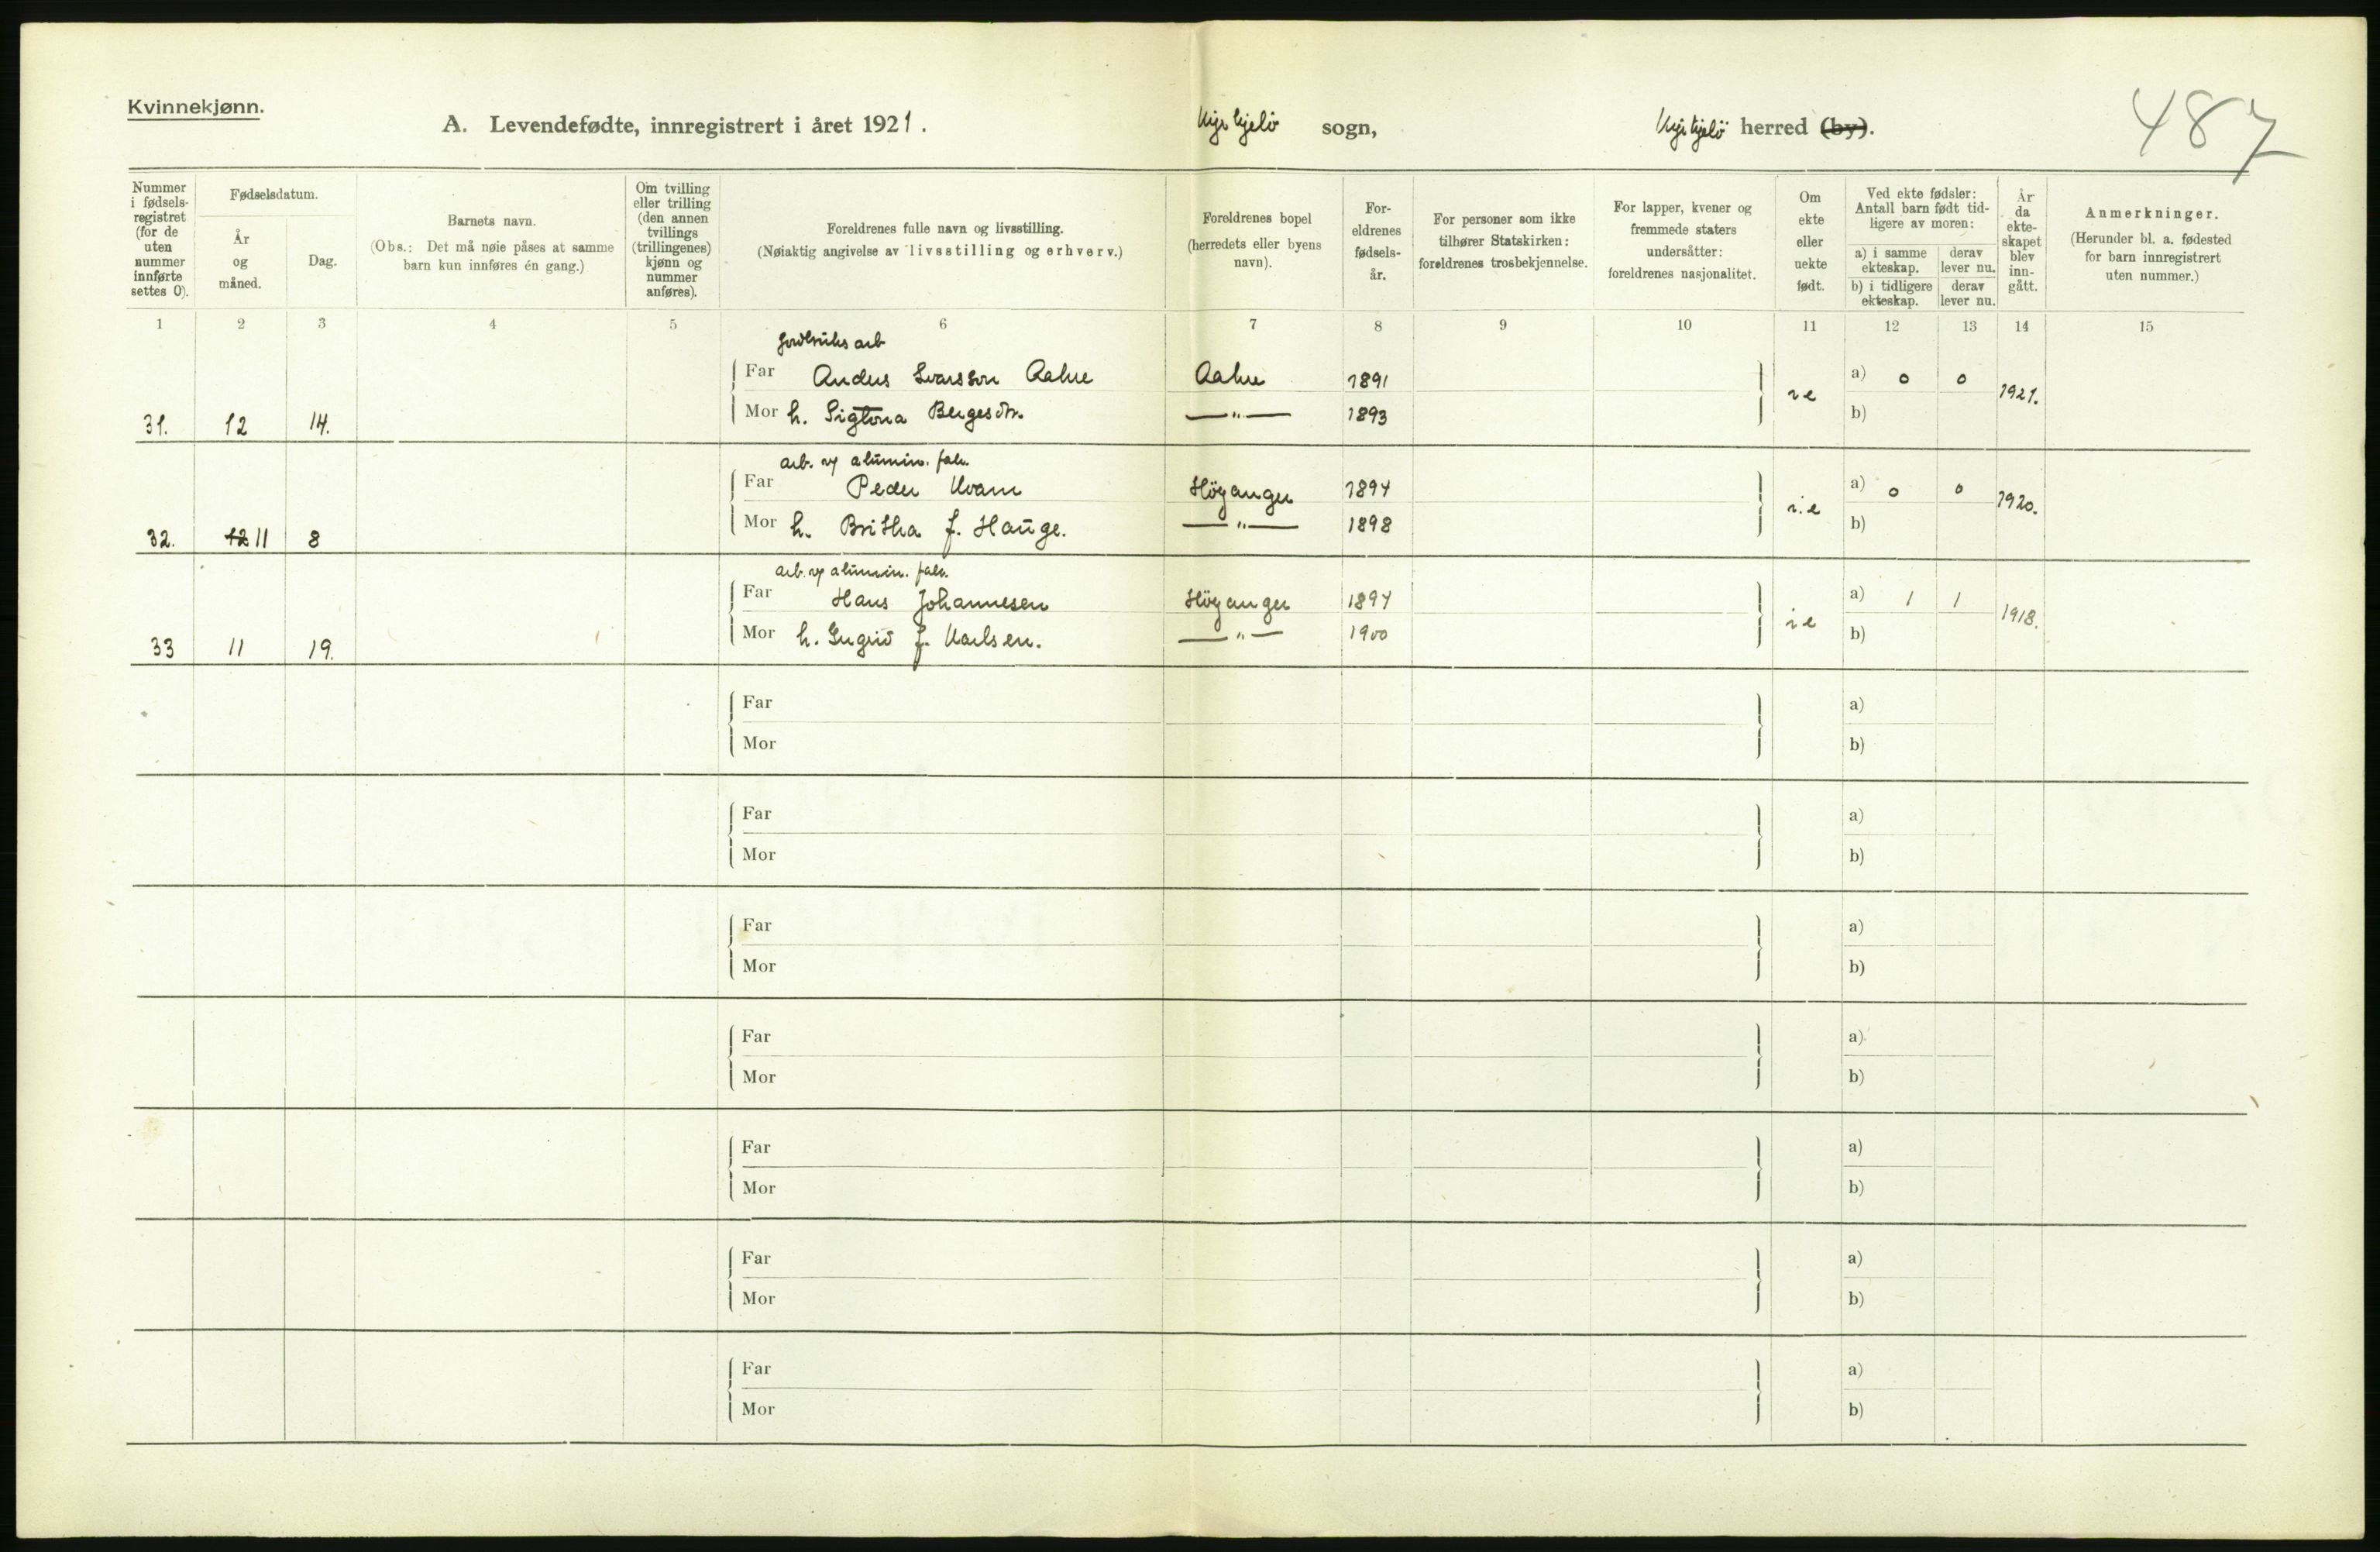 Kvinnekjønn.
A. Levendefødte, innregistrert i året 1921. Kyrkjebø sogn, Kyrkjebø herred (by).
487
Nummer i fødselsregistret (for de uten nummer innførte settes 0).
Fødselsdatum.
År og måned.
Dag.
Barnets navn.
(Obs.: Det må nøie påses at samme barn kun innføres én gang.)
Om tvilling eller trilling (den annen tvillings (trillingenes) kjønn og nummer anføres).
Foreldrenes fulle navn og livsstilling.
(Nøiaktig angivelse av livsstilling og erhverv.)
Foreldrenes bopel (herredets eller byens navn).
Foreldrenes fødselsår.
For personer som ikke tilhører Statskirken: foreldrenes trosbekjennelse.
For lapper, kvener og fremmede staters undersåtter: foreldrenes nasjonalitet.
Om ekte eller uekte født.
Ved ekte fødsler: Antall barn født tidligere av moren:
a) i samme ekteskap. derav lever nu.
b) i tidligere ekteskap. derav lever nu.
År da ekteskapet blev inngått.
Anmerkninger.
(Herunder bl. a. fødested for barn innregistrert uten nummer.)
1 2 3 4 5 6 7 8 9 10 11 12 13 14 15
jordbruks arb
Far Anders Ivarsson Aahre Aahre 1891 a) 0 0
31. 12 14. Mor h. Sigtona Bergesdtr. —„— 1893 ie b) 1921.
arb. v/ alumin. fabr.
Far Peder Kvam Höyanger 1894 a) 0 0
32. 12 11 8 Mor h. Britha f. Hauge. —„— 1898 i.e b) 1920.
arb. v/ alumin. fabr.
Far Hans Johannesen Höyanger 1894 a) 1 1
33 11 19. Mor h. Ingrid f. Karlsen. —„— 1900 ie b) 1918.
Far a)
Mor b)
Far a)
Mor b)
Far a)
Mor b)
Far a)
Mor b)
Far a)
Mor b)
Far a)
Mor b)
Far a)
Mor b)